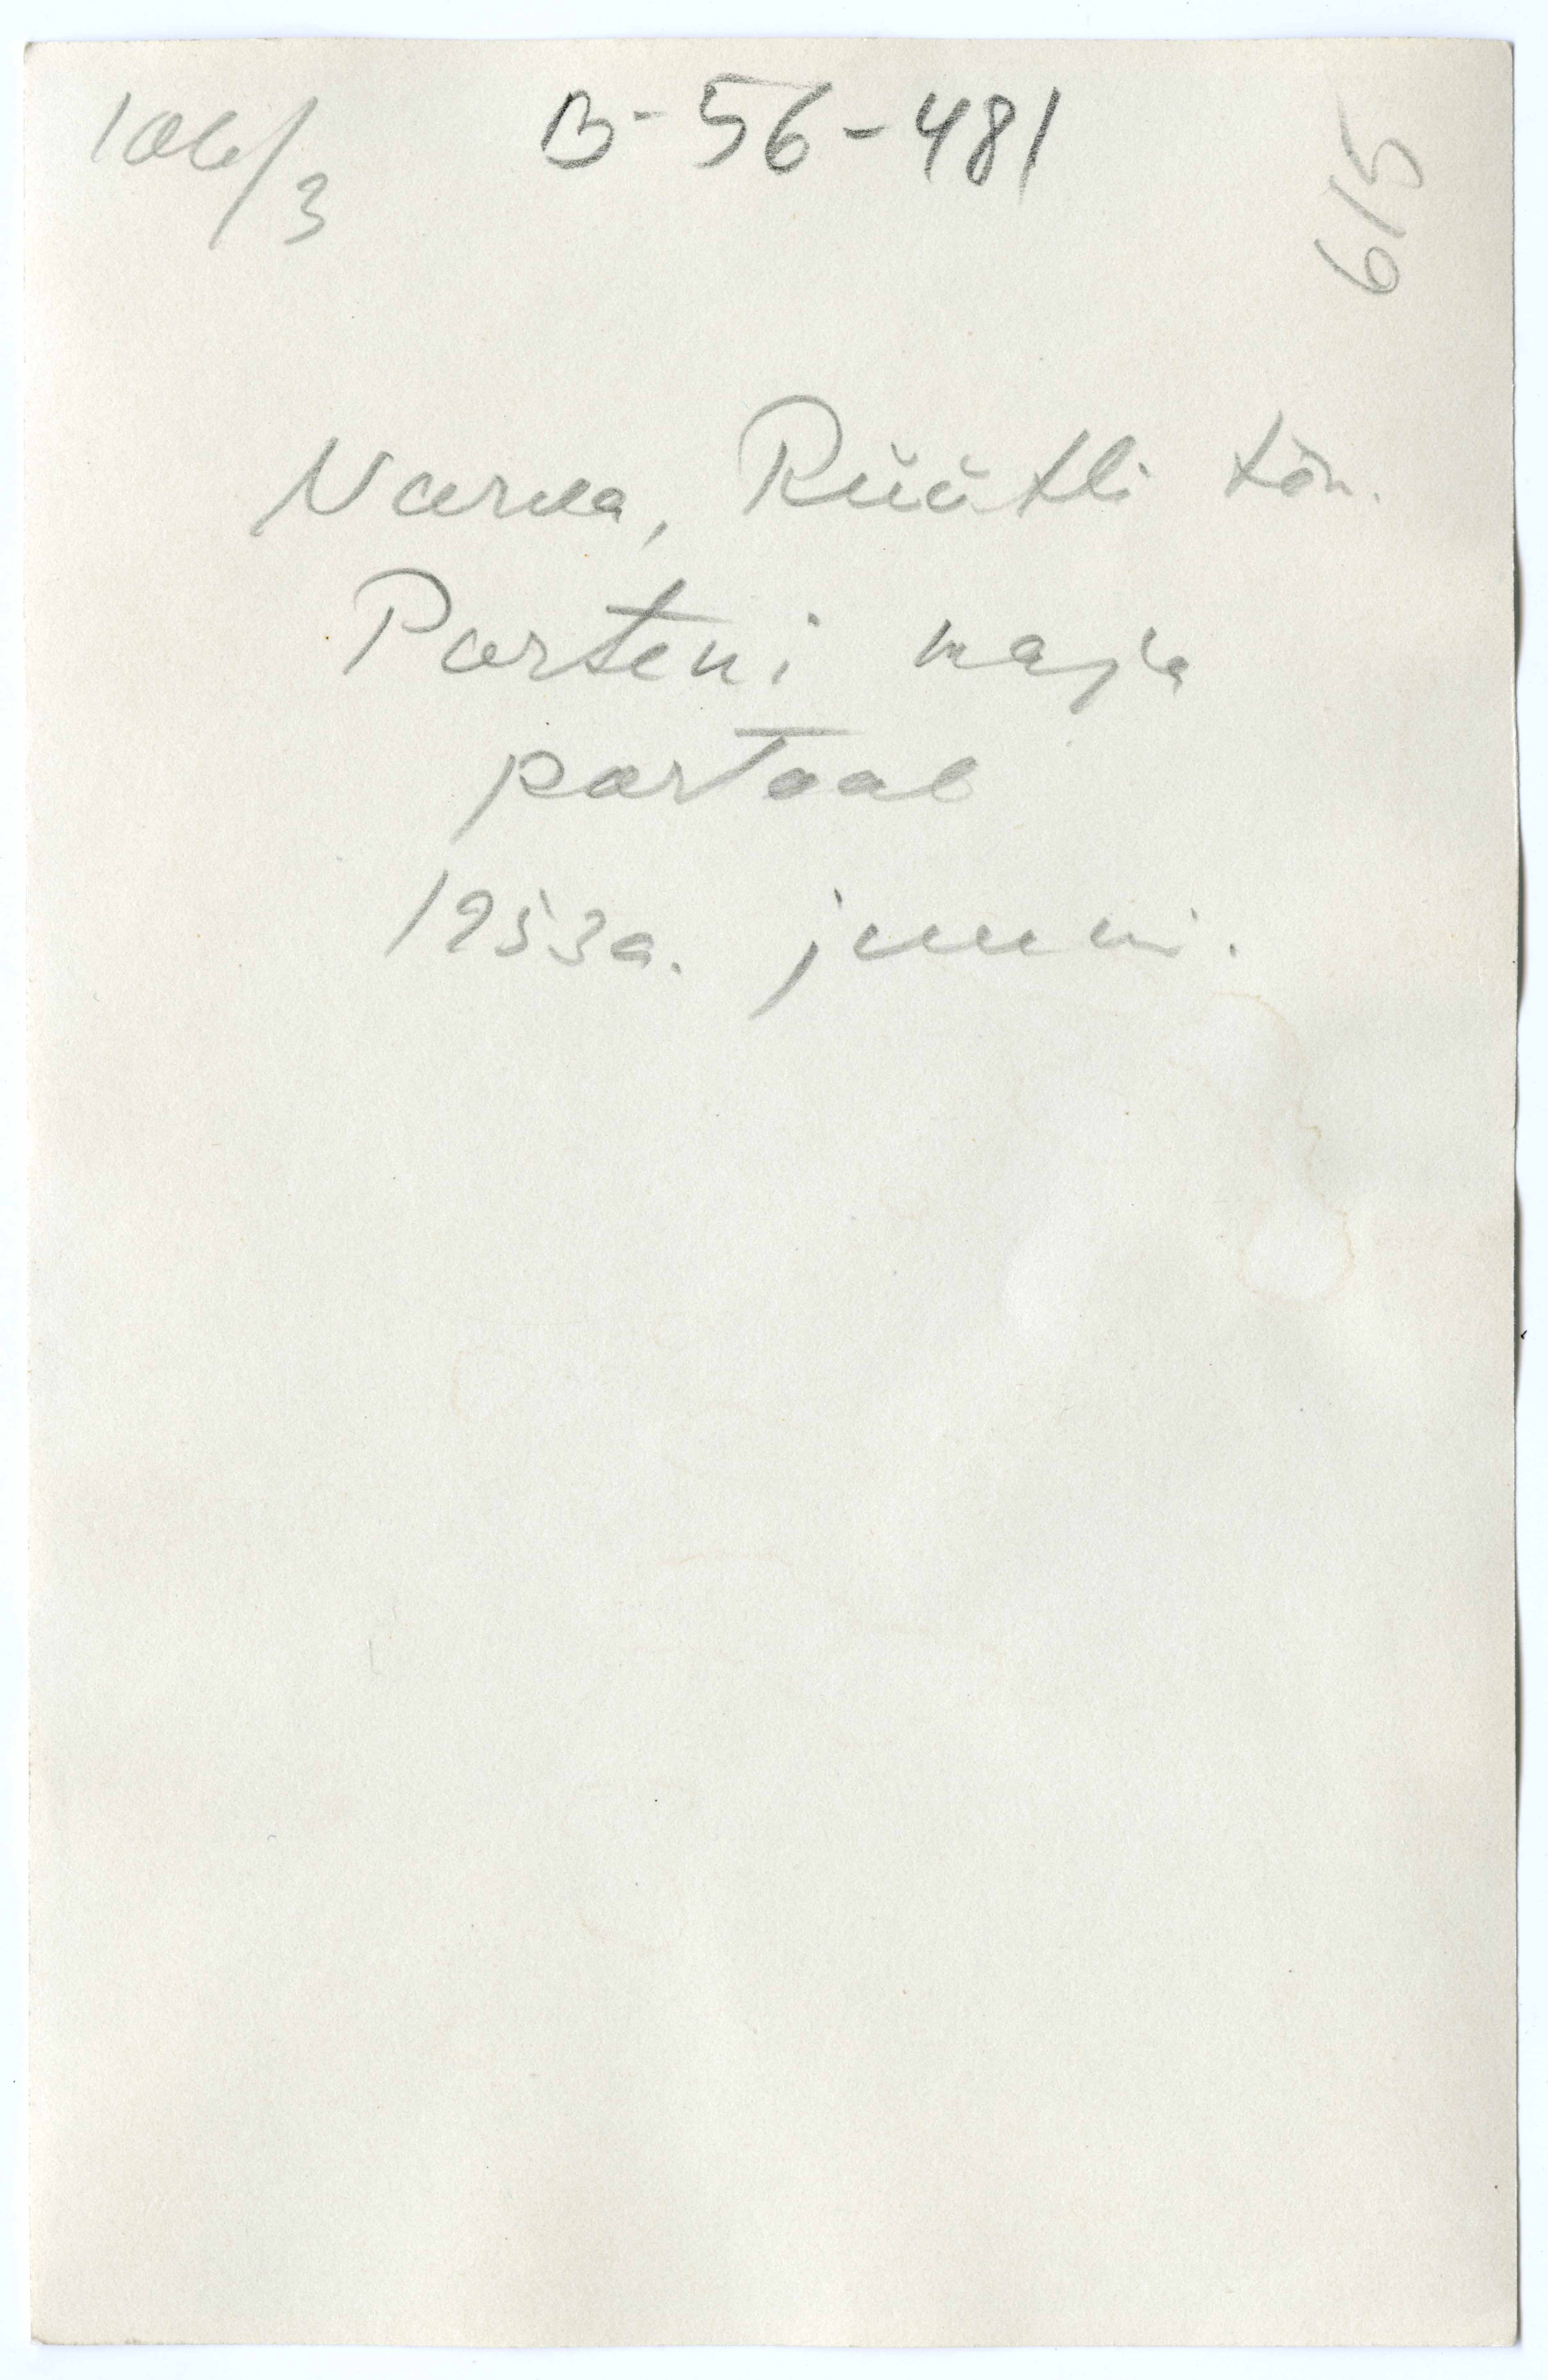 106/3
B-56-481
615
Narva, Rüütli tän.
Porteni maja
portaal
1953a. juuni.